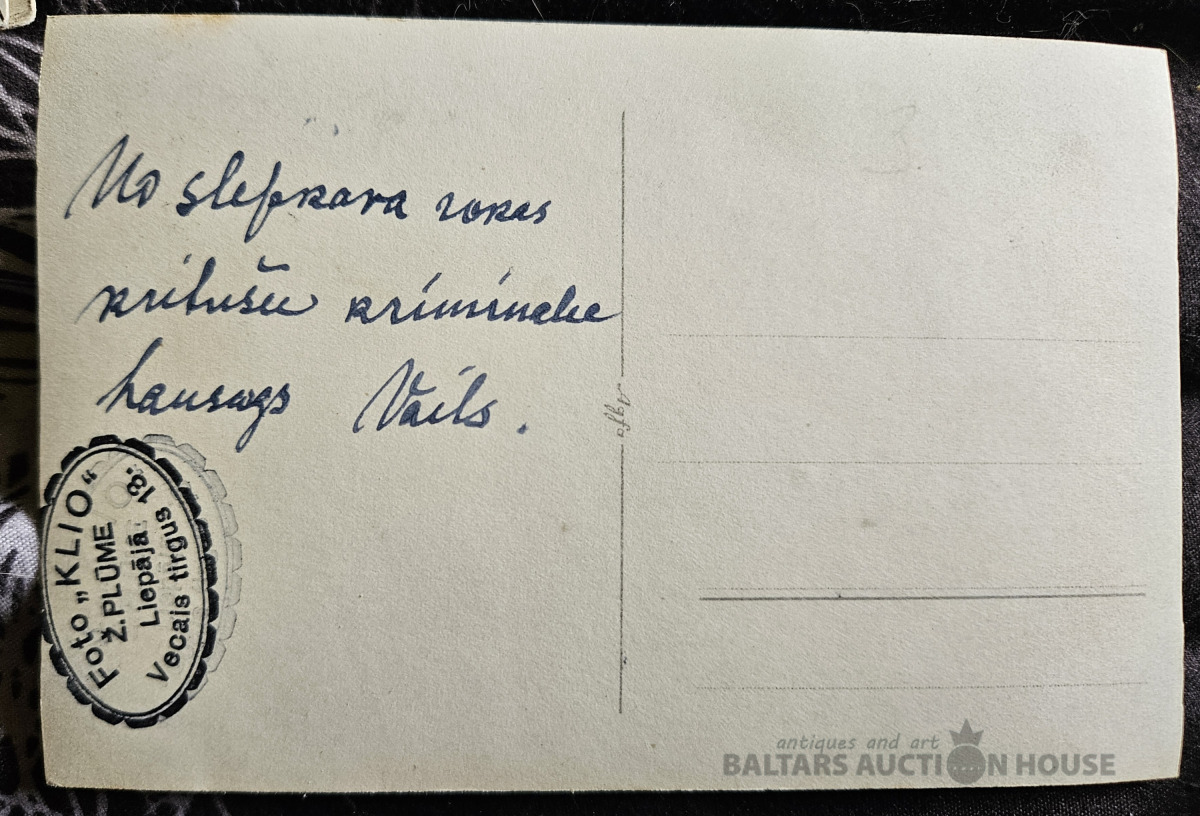 No slepkava rokas
kritušu kriminalie
Vails.
Agfa
Foto „KLIO“
Ž. PLŪME
Liepājā
Vecais tirgus 18.
antiques and art
BALTARS AUCTION HOUSE